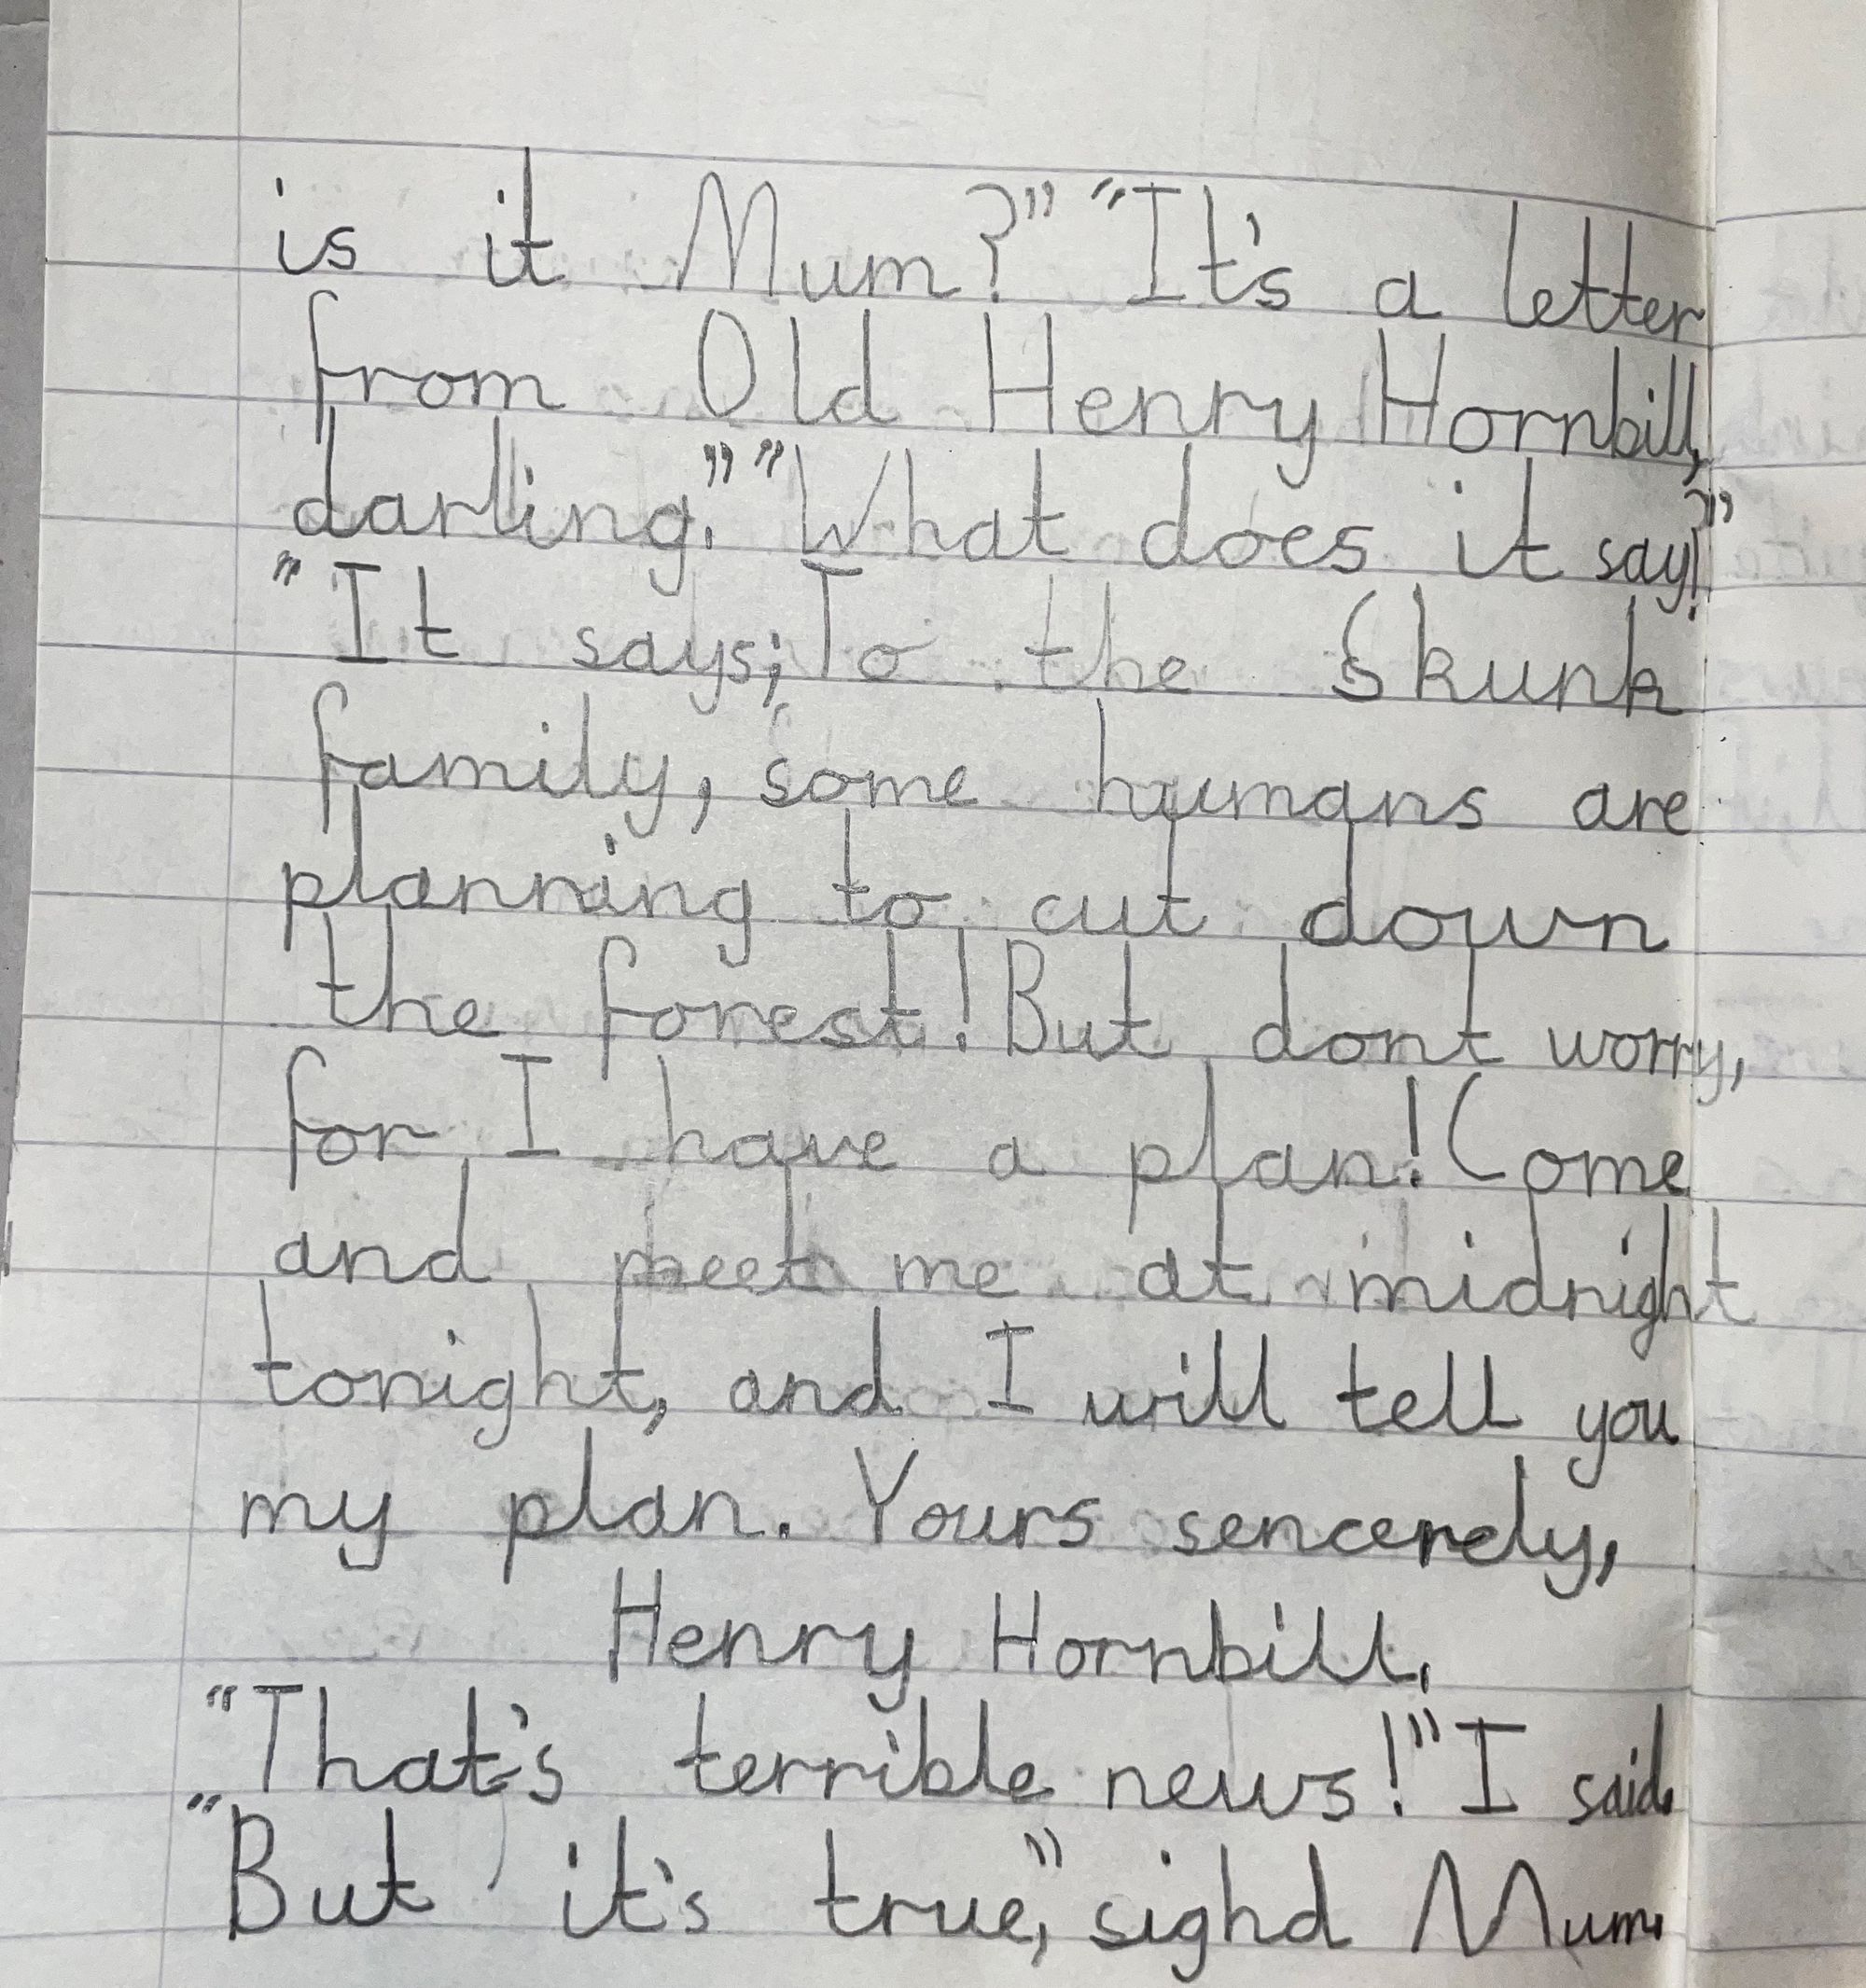 is it Mum?" "It's a letter
from Old Henry Hornbill,
darling." "What does it say?"
"It says; To the Skunk
family, some humans are
planning to cut down
the forest! But dont worry,
for I have a plan! Come
and meet me at midnight
tonight, and I will tell you
my plan. Yours sencerely,
Henry Hornbill.
"That's terrible news!" I said.
"But it's true," sighd Mum.